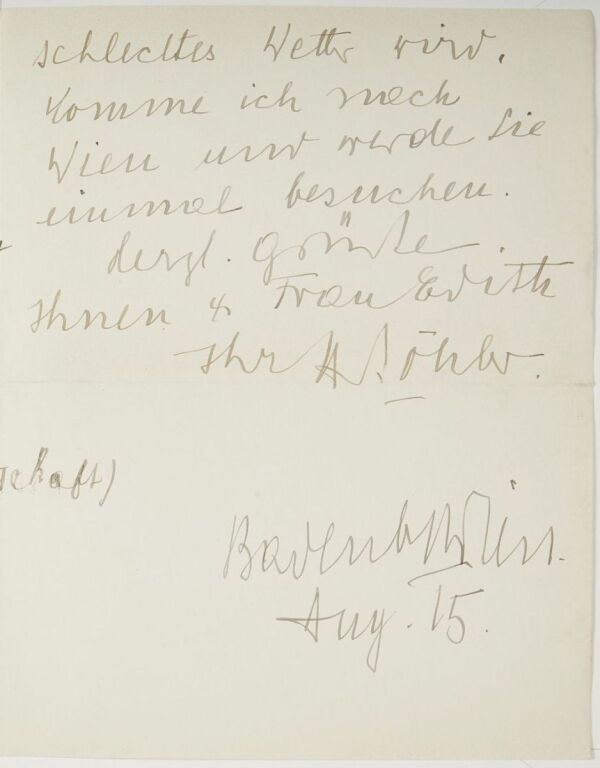 schlechtes Wetter wird,
komme ich nach
Wien und werde Sie
einmal besuchen.
Herzl. Grüße
Ihnen & Frau Edith
Ihr H. Böhler.
schaft)
Baden b/Wien.
Aug. 15.